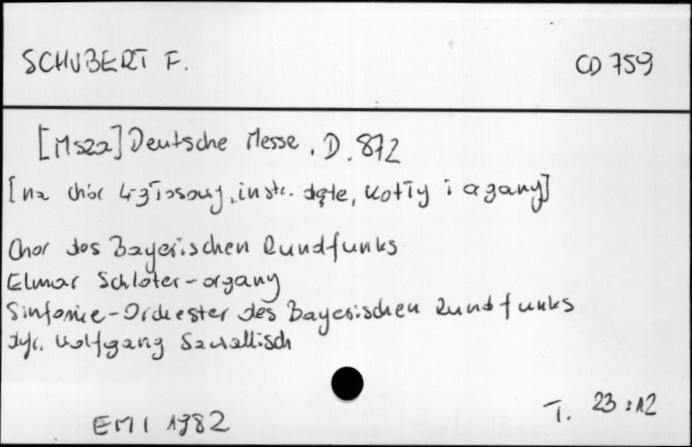 SCHUBERT F.
CD 759
[Msza] Deutsche Messe. D. 872
[na chór 4-głosowy, instr. dęte, kotły i organy]
Chor des Bayerischen Rundfunks
Elmar Schloter - organy
Sinfonie-Orchester des Bayerischen Rundfunks
dyr. Wolfgang Sawallisch
EMI 1982
T. 23:12